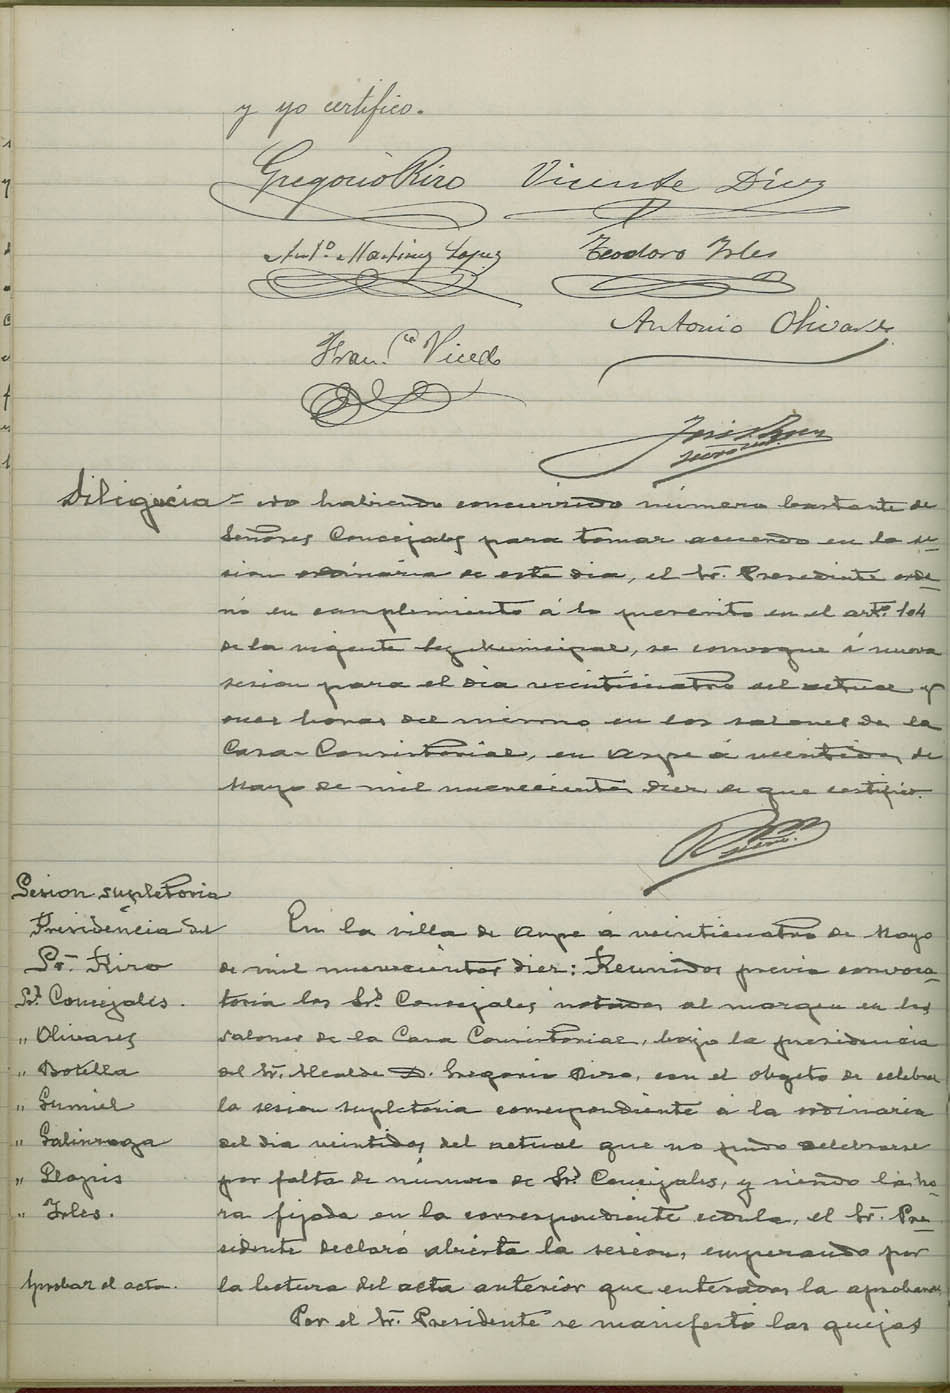 y yo certifico.
Gregorio Rizo Vicente Díez
Ant.º Martinez Lopez Teodoro Irles
Antonio Olivares
Fran.co Vicedo
José
Diligecia = No habiendo concurrido número bastante de
Señores Concejales para tomar acuerdo en la se-
sion ordinaria de este dia, el Sr. Presidente orde-
nó en cumplimiento á lo prescrito en el artº. 104
de la vigente ley Municipal, se convoque á nueva
sesion para el dia veinticuatro del actual y
once horas del mismo en los salones de la
Casa-Consistorial, en Aspe á veintidos de
Mayo de mil novecientos diez de que certifico.
Sesion supletoria
Presidencia del
Sr. Rizo
Srs. Concejales.
" Olivares
" Botella
" Gumiel
" Galinsoga
" Llopis
" Irles.
En la villa de Aspe á veinticuatro de Mayo
de mil novecientos diez: Reunidos previa convoca-
toria los Srs. Concejales notados al margen en los
salones de la Casa Consistorial, bajo la presidencia
del Sr. Alcalde D. Gregorio Rizo, con el objeto de celebrar
la sesion supletoria correspondiente á la ordinaria
del dia veintidos del actual que no pudo celebrarse
por falta de número de Srs. Concejales, y siendo la ho-
ra fijada en la correspondiente cédula, el Sr. Pre-
sidente declaró abierta la sesion, empezando por
Aprobar el acta. la lectura del acta anterior que enterados la aprobaron.
Por el Sr. Presidente se manifestó las quejas